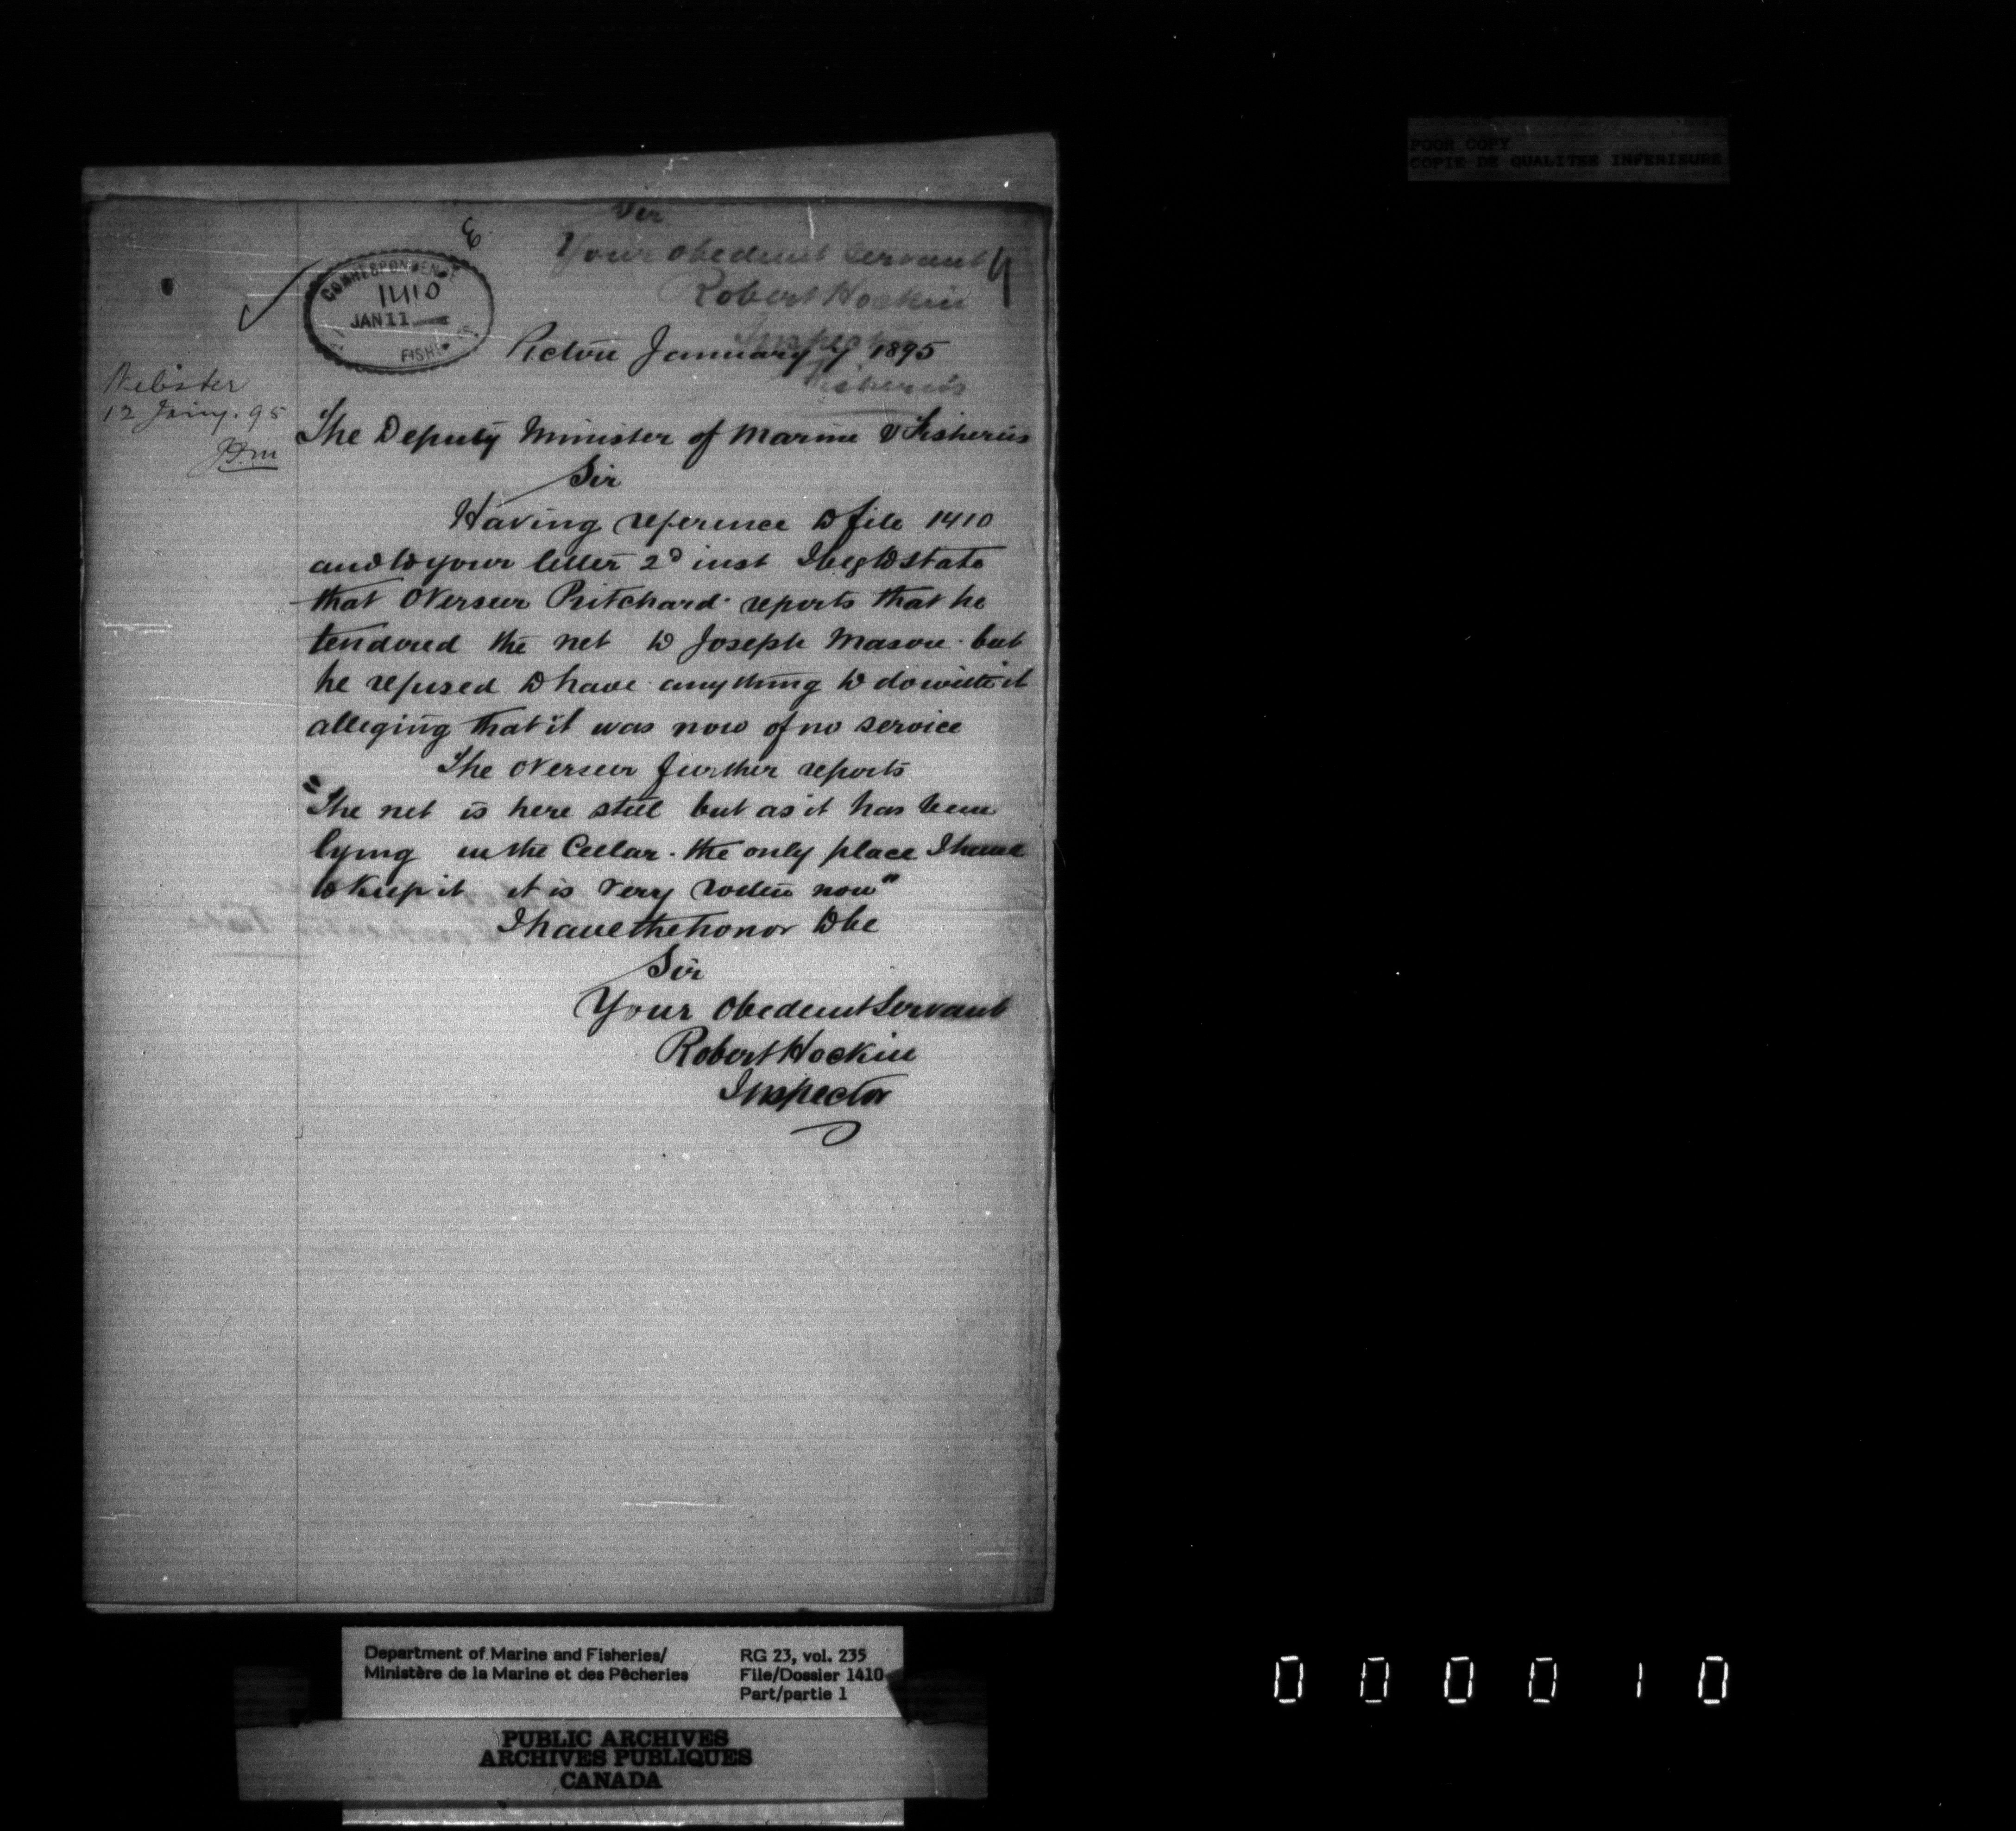 POOR COPY
COPIE DE QUALITEE INFERIEURE
Sir
Your obedient Servant
Robert Hockin
Inspector
Fisheries
9
CORRESPONDENCE
1410
JAN 11
FISH
Pictou January 7 1895
Webster
12 Jany. 95
The Deputy Minister of Marine & Fisheries
Sir
Having reference to file 1410
and to your letter 2d inst I beg to state
that Overseer Pritchard reports that he
tendered the net to Joseph Mason but
he refused to have anything to do with it
alleging that it was now of no service
The Overseer further reports
"The net is here still but as it has been
lying in the Cellar. the only place I have
to keep it it is very rotten now"
I have the honor to be
Sir
Your Obedient Servant
Robert Hockin
Inspector
Department of Marine and Fisheries/
Ministère de la Marine et des Pêcheries
RG 23, vol. 235
File/Dossier 1410
Part/partie 1
PUBLIC ARCHIVES
ARCHIVES PUBLIQUES
CANADA
000010